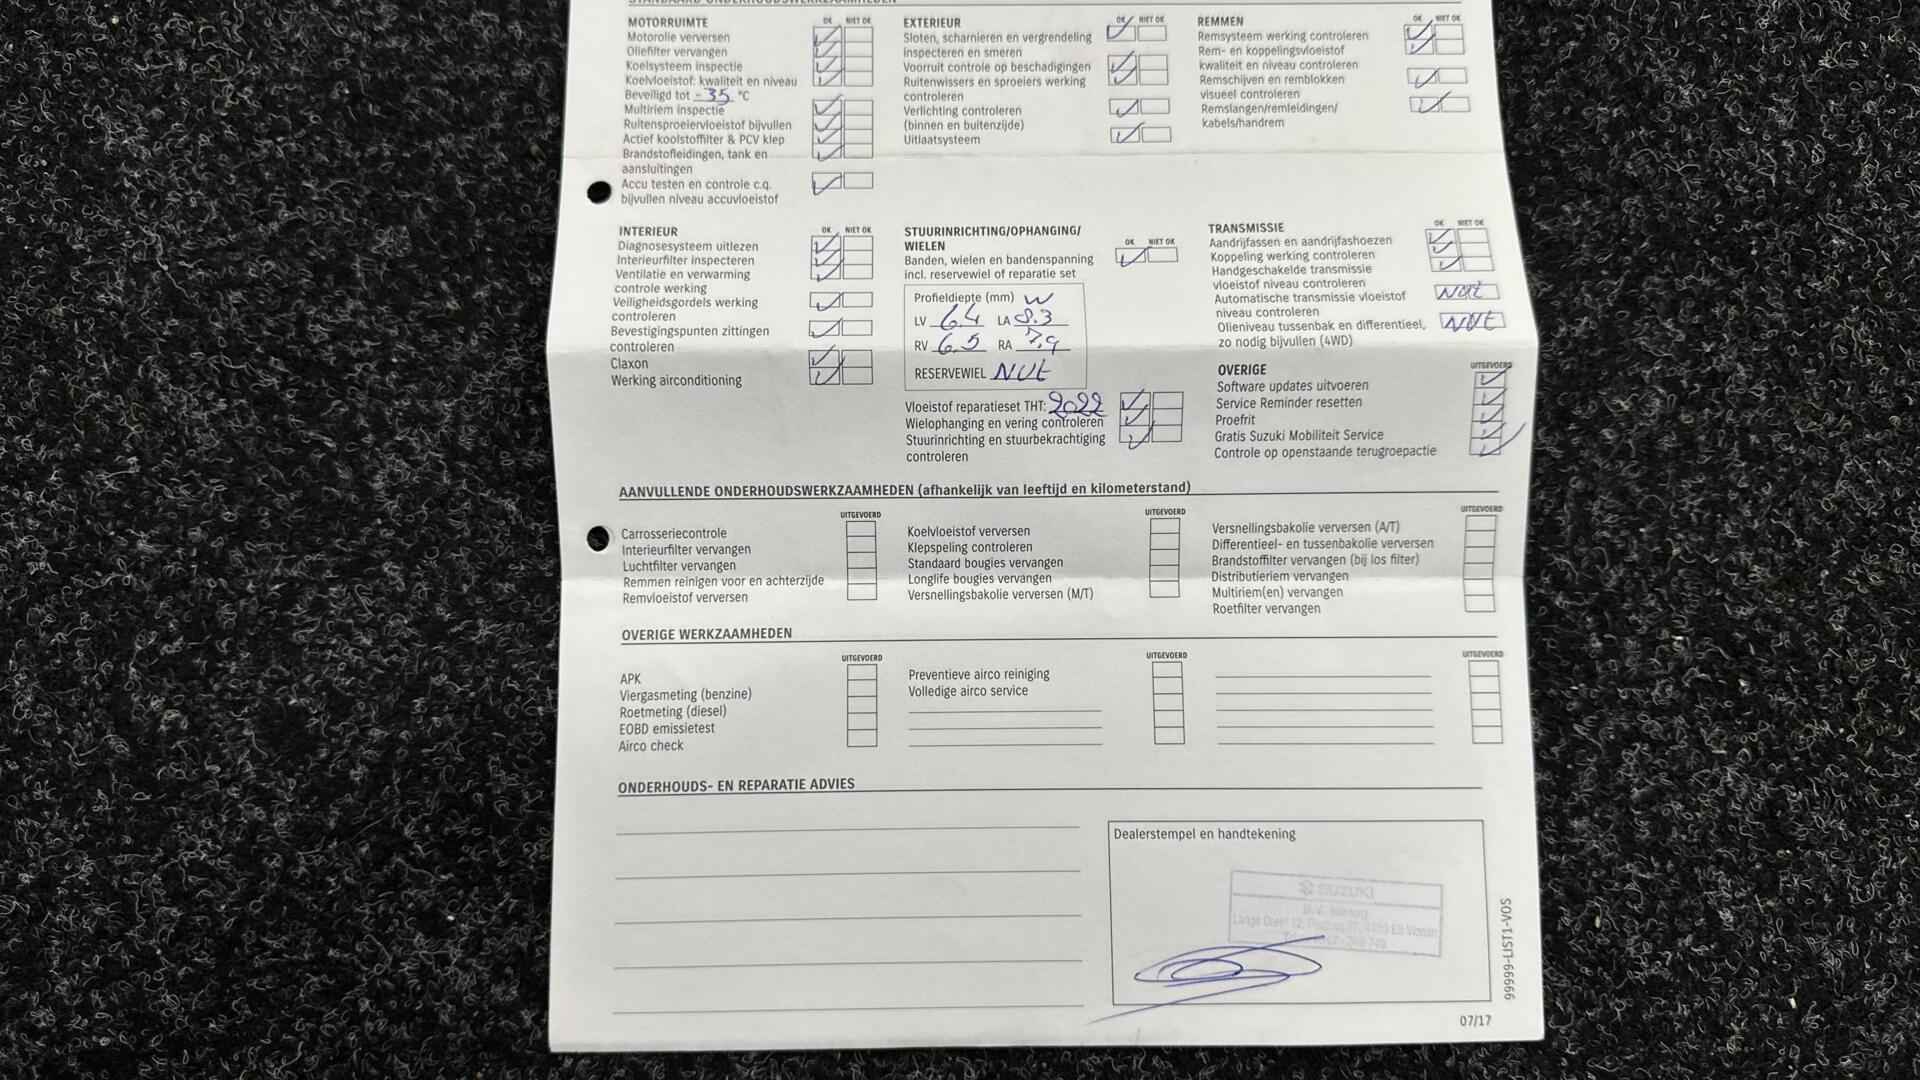 STANDAARD ONDERHOUDSWERKZAAMHEDEN
MOTORRUIMTE
OK NIET OK
Motorolie verversen
Oliefilter vervangen
Koelsysteem inspectie
Koelvloeistof: kwaliteit en niveau
Beveiligd tot -35 °C
Multiriem inspectie
Ruitensproeiervloeistof bijvullen
Actief koolstoffilter & PCV klep
Brandstofleidingen, tank en
aansluitingen
Accu testen en controle c.q.
bijvullen niveau accuvloeistof
EXTERIEUR
OK NIET OK
Sloten, scharnieren en vergrendeling
inspecteren en smeren
Voorruit controle op beschadigingen
Ruitenwissers en sproeiers werking
controleren
Verlichting controleren
(binnen en buitenzijde)
Uitlaatsysteem
REMMEN
OK NIET OK
Remsysteem werking controleren
Rem- en koppelingsvloeistof
kwaliteit en niveau controleren
Remschijven en remblokken
visueel controleren
Remslangen/remleidingen/
kabels/handrem
INTERIEUR
OK NIET OK
Diagnosesysteem uitlezen
Interieurfilter inspecteren
Ventilatie en verwarming
controle werking
Veiligheidsgordels werking
controleren
Bevestigingspunten zittingen
controleren
Claxon
Werking airconditioning
STUURINRICHTING/OPHANGING/
WIELEN
OK NIET OK
Banden, wielen en bandenspanning
incl. reservewiel of reparatie set
Profieldiepte (mm) W
LV 6.4 LA 8.3
RV 6.5 RA 7.9
RESERVEWIEL NVT
Vloeistof reparatieset THT: 2022
Wielophanging en vering controleren
Stuurinrichting en stuurbekrachtiging
controleren
TRANSMISSIE
OK NIET OK
Aandrijfassen en aandrijfashoezen
Koppeling werking controleren
Handgeschakelde transmissie
vloeistof niveau controleren
Automatische transmissie vloeistof NVT
niveau controleren
Olieniveau tussenbak en differentieel, NVT
zo nodig bijvullen (4WD)
OVERIGE
UITGEVOERD
Software updates uitvoeren
Service Reminder resetten
Proefrit
Gratis Suzuki Mobiliteit Service
Controle op openstaande terugroepactie
AANVULLENDE ONDERHOUDSWERKZAAMHEDEN (afhankelijk van leeftijd en kilometerstand)
UITGEVOERD
Carrosseriecontrole
Interieurfilter vervangen
Luchtfilter vervangen
Remmen reinigen voor en achterzijde
Remvloeistof verversen
UITGEVOERD
Koelvloeistof verversen
Klepspeling controleren
Standaard bougies vervangen
Longlife bougies vervangen
Versnellingsbakolie verversen (M/T)
UITGEVOERD
Versnellingsbakolie verversen (A/T)
Differentieel- en tussenbakolie verversen
Brandstoffilter vervangen (bij los filter)
Distributieriem vervangen
Multiriem(en) vervangen
Roetfilter vervangen
OVERIGE WERKZAAMHEDEN
UITGEVOERD
APK
Viergasmeting (benzine)
Roetmeting (diesel)
EOBD emissietest
Airco check
UITGEVOERD
Preventieve airco reiniging
Volledige airco service
UITGEVOERD
ONDERHOUDS- EN REPARATIE ADVIES
Dealerstempel en handtekening
SUZUKI
99999-LIST1-VOS
07/17